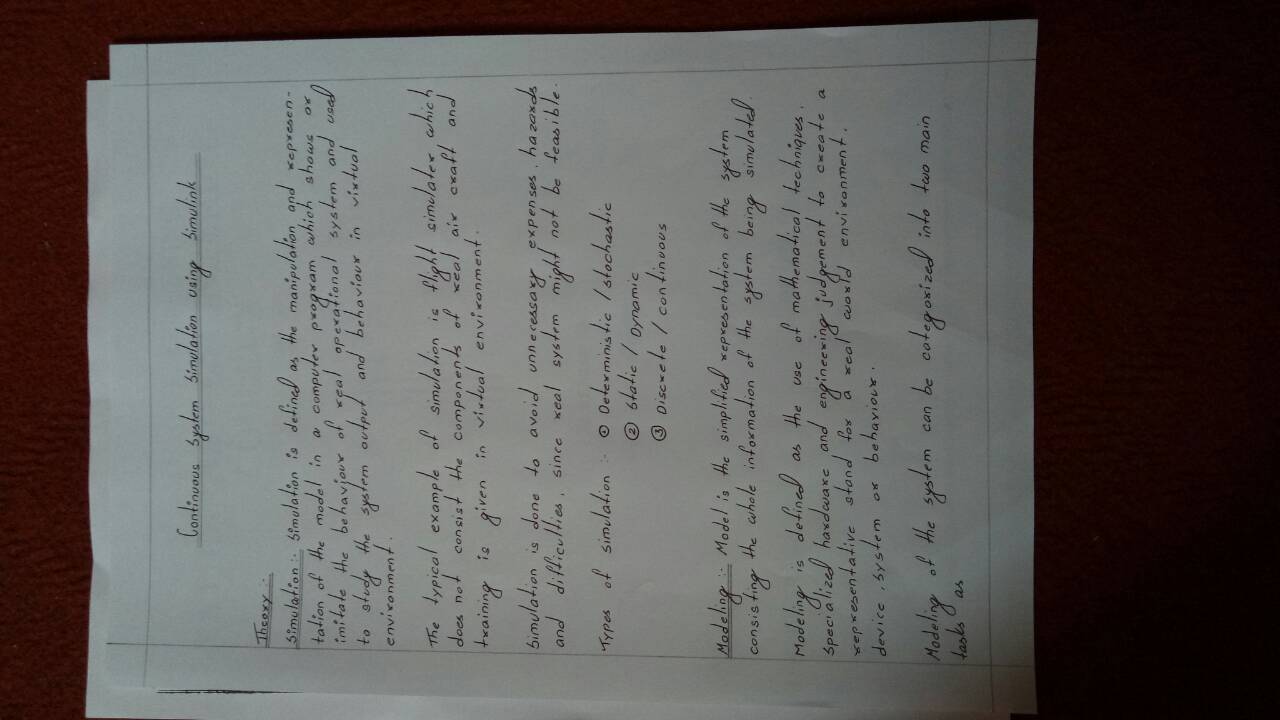 Continuous System Simulation using Simulink
Theory :-
Simulation :- Simulation is defined as the manipulation and represen-
tation of the model in a computer program which shows or
imitate the behaviour of real operational system and used
to study the system output and behaviour in virtual
environment.
The typical example of simulation is flight simulater which
does not consist the components of real air craft and
training is given in virtual environment.
Simulation is done to avoid unnecessary expenses, hazards
and difficulties, since real system might not be feasible.
Types of simulation :- ① Deterministic / stochastic
② Static / Dynamic
③ Discrete / continuous
Modeling :- Model is the simplified representation of the system
consisting the whole information of the system being simulated.
Modeling is defined as the use of mathematical techniques,
specialized hardware and engineering judgement to create a
representative stand for a real world environment,
device, system or behaviour.
Modeling of the system can be categorized into two main
tasks as